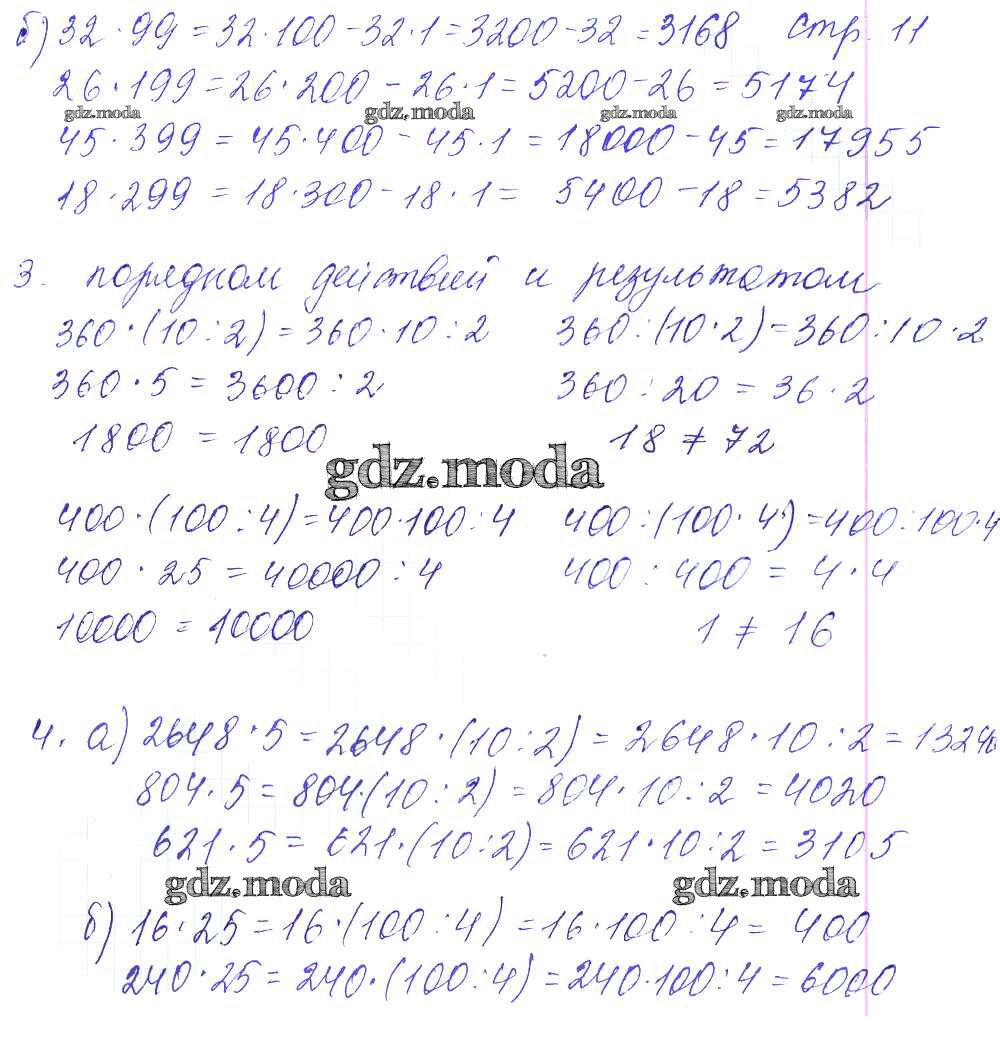 б) 32 · 99 = 32 · 100 - 32 · 1 = 3200 - 32 = 3168 стр. 11
26 · 199 = 26 · 200 - 26 · 1 = 5200 - 26 = 5174
gdz.moda gdz.moda gdz.moda gdz.moda
45 · 399 = 45 · 400 - 45 · 1 = 18000 - 45 = 17955
18 · 299 = 18 · 300 - 18 · 1 = 5400 - 18 = 5382
3. порядком действий и результатом
360 · (10 : 2) = 360 · 10 : 2 360 : (10 · 2) = 360 : 10 · 2
360 · 5 = 3600 : 2 360 : 20 = 36 · 2
1800 = 1800 18 ≠ 72
gdz.moda
400 · (100 : 4) = 400 · 100 : 4 400 : (100 · 4) = 400 : 100 · 4
400 · 25 = 40000 : 4 400 : 400 = 4 · 4
10000 = 10000 1 ≠ 16
4. а) 2648 · 5 = 2648 · (10 : 2) = 2648 · 10 : 2 = 13240
804 · 5 = 804 · (10 : 2) = 804 · 10 : 2 = 4020
621 · 5 = 621 · (10 : 2) = 621 · 10 : 2 = 3105
gdz.moda gdz.moda
б) 16 · 25 = 16 · (100 : 4) = 16 · 100 : 4 = 400
240 · 25 = 240 · (100 : 4) = 240 · 100 : 4 = 6000